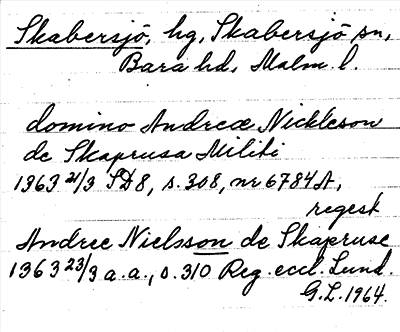 Skabersjö, hg, Skabersjö sn,
Bara hd, Malm. l.
domino Andreæ Nickleson
de Skaprusa Militi
1363 21/3 SD8, s. 308, nr 6784A,
regest
Andree Nielsson de Skapruse
1363 23/3 a.a., s. 310 Reg. eccl. Lund.
G.L. 1964.